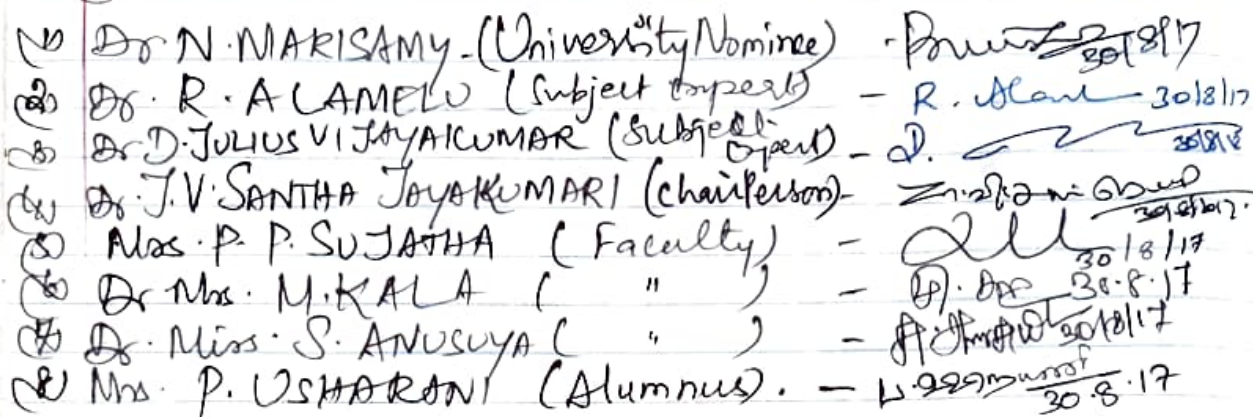 (1) Dr N. MARISAMY - (University Nominee) - 30/8/17
(2) Dr. R. ALAMELU (Subject Expert) - R. Alam 30/8/17
(3) Dr D. JULIUS VIJAYAKUMAR (Subject Expert) - D.
(4) Dr. J.V. SANTHA JAYAKUMARI (chairPerson) -
(5) Mrs. P. P. SUJATHA (Faculty) - 30/8/17
(6) Dr Mrs. M. KALA ( " ) - 30.8.17
(7) Dr. Miss. S. ANUSUYA ( " ) - 30/8/17
(8) Mrs. P. USHARANI (Alumnus). - 30.8.17